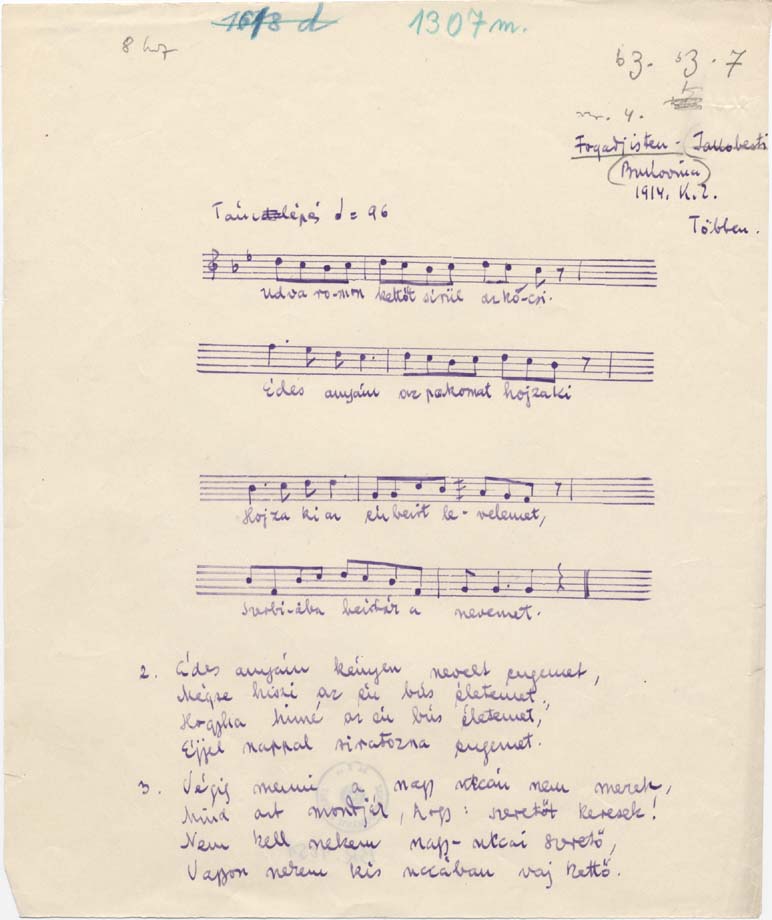 1618 d 1307 m.
8 hoz
63. 53. 7
nr. 4.
Fogadjisten - Jakobesti
Bukovina
1914. K. Z.
Többen.
Tánclépés = 96
Udva ro-mon kettőt sirül az kó-csi.
Édes anyám az pakomat hojzaki
Hojza ki az én beirt le-velemet,
szerbi-ába beirtár a nevemet.
2. Édes anyám kényen nevelt engemet,
Mégse hiszi az én bús életemet,
Hogyha hinné az én bús életemet,
Éjjel nappal siratozna engemet.
3. Végig menni a nagy uccán nem merek,
Mind azt mondják, hogy: szeretőt keresek!
Nem kell nekem nagy-uccai szerető,
Vagyon nekem kis uccában vaj kettő.